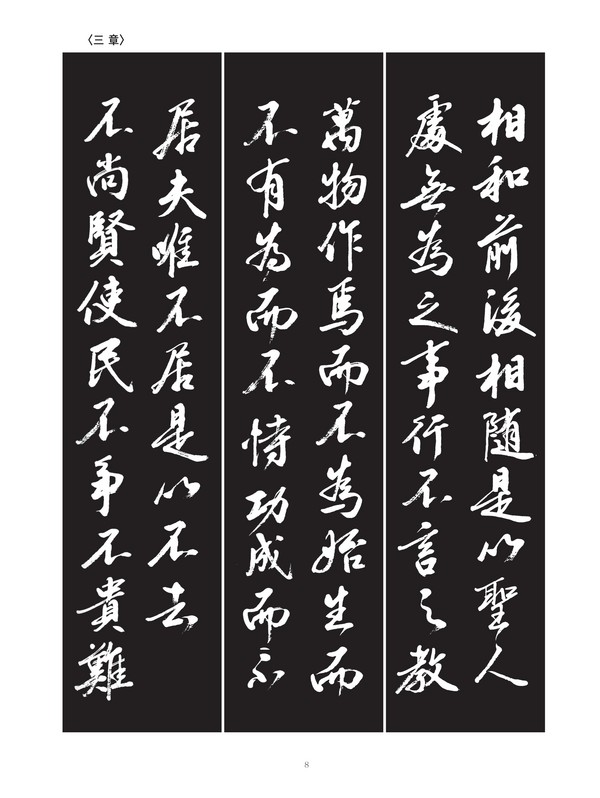 〈三 章〉
相和前後相随是以聖人
處無為之事行不言之教
萬物作焉而不為始生而
不有為而不恃功成而不
居夫唯不居是以不去
不尚賢使民不爭不貴難
8